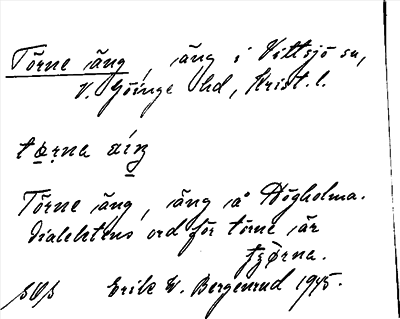 Törne äng, äng i Vittsjö sn,
V. Göinge hd, Krist. l.
tœrna äiŋ
Törne äng, äng å Högholma.
Dialektens ord för törne är
Erik W. Bergenrud 1945.